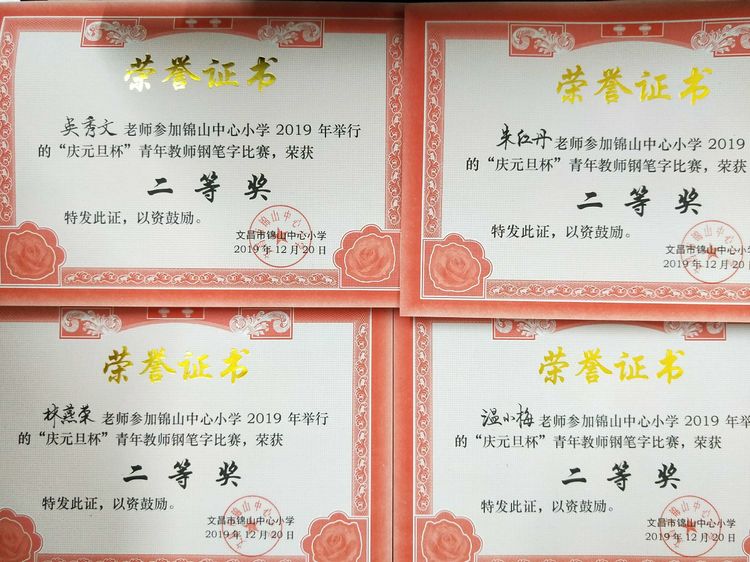 荣誉证书
吴秀文 老师参加锦山中心小学 2019 年举行
的“庆元旦杯”青年教师钢笔字比赛，荣获
二等奖
特发此证，以资鼓励。
文昌市锦山中心小学
2019 年 12 月 20 日
荣誉证书
朱红丹 老师参加锦山中心小学 2019
的“庆元旦杯”青年教师钢笔字比赛，荣获
二等奖
特发此证，以资鼓励。
文昌市锦山中心小学
2019 年 12 月 20
荣誉证书
林燕荣 老师参加锦山中心小学 2019 年举行
的“庆元旦杯”青年教师钢笔字比赛，荣获
二等奖
特发此证，以资鼓励。
文昌市锦山中心小学
2019 年 12 月 20 日
荣誉证书
温小梅 老师参加锦山中心小学 2019 年举
的“庆元旦杯”青年教师钢笔字比赛，荣获
二等奖
特发此证，以资鼓励。
文昌市锦山中心小学
2019 年 12 月 20 日